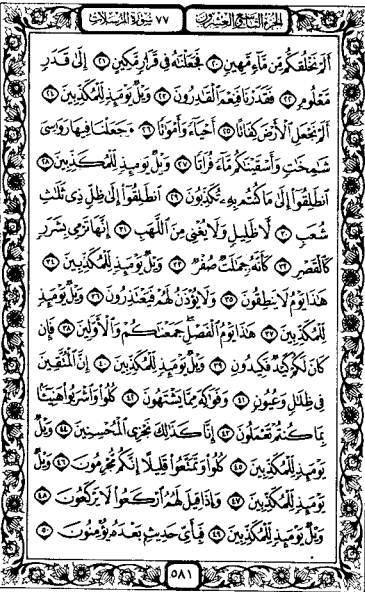 الجزء التاسع والعشرون
٧٧ سورة المرسلات
أَلَمْ نَخْلُقكُّم مِّن مَّآءٍ مَّهِينٍ ٢٠ فَجَعَلْنَٰهُ فِى قَرَارٍ مَّكِينٍ ٢١ إِلَىٰ قَدَرٍ
مَّعْلُومٍ ٢٢ فَقَدَرْنَا فَنِعْمَ ٱلْقَٰدِرُونَ ٢٣ وَيْلٌ يَوْمَئِذٍ لِّلْمُكَذِّبِينَ ٢٤
أَلَمْ نَجْعَلِ ٱلْأَرْضَ كِفَاتًا ٢٥ أَحْيَآءً وَأَمْوَٰتًا ٢٦ وَجَعَلْنَا فِيهَا رَوَٰسِىَ
شَٰمِخَٰتٍ وَأَسْقَيْنَٰكُم مَّآءً فُرَاتًا ٢٧ وَيْلٌ يَوْمَئِذٍ لِّلْمُكَذِّبِينَ ٢٨
ٱنطَلِقُوٓا۟ إِلَىٰ مَا كُنتُم بِهِۦ تُكَذِّبُونَ ٢٩ ٱنطَلِقُوٓا۟ إِلَىٰ ظِلٍّ ذِى ثَلَٰثِ
شُعَبٍ ٣٠ لَّا ظَلِيلٍ وَلَا يُغْنِى مِنَ ٱللَّهَبِ ٣١ إِنَّهَا تَرْمِى بِشَرَرٍ
كَٱلْقَصْرِ ٣٢ كَأَنَّهُۥ جِمَٰلَتٌ صُفْرٌ ٣٣ وَيْلٌ يَوْمَئِذٍ لِّلْمُكَذِّبِينَ ٣٤
هَٰذَا يَوْمُ لَا يَنطِقُونَ ٣٥ وَلَا يُؤْذَنُ لَهُمْ فَيَعْتَذِرُونَ ٣٦ وَيْلٌ يَوْمَئِذٍ
لِّلْمُكَذِّبِينَ ٣٧ هَٰذَا يَوْمُ ٱلْفَصْلِ جَمَعْنَٰكُمْ وَٱلْأَوَّلِينَ ٣٨ فَإِن
كَانَ لَكُمْ كَيْدٌ فَكِيدُونِ ٣٩ وَيْلٌ يَوْمَئِذٍ لِّلْمُكَذِّبِينَ ٤٠ إِنَّ ٱلْمُتَّقِينَ
فِى ظِلَٰلٍ وَعُيُونٍ ٤١ وَفَوَٰكِهَ مِمَّا يَشْتَهُونَ ٤٢ كُلُوا۟ وَٱشْرَبُوا۟ هَنِيٓـًٔۢا
بِمَا كُنتُمْ تَعْمَلُونَ ٤٣ إِنَّا كَذَٰلِكَ نَجْزِى ٱلْمُحْسِنِينَ ٤٤ وَيْلٌ
يَوْمَئِذٍ لِّلْمُكَذِّبِينَ ٤٥ كُلُوا۟ وَتَمَتَّعُوا۟ قَلِيلًا إِنَّكُم مُّجْرِمُونَ ٤٦ وَيْلٌ
يَوْمَئِذٍ لِّلْمُكَذِّبِينَ ٤٧ وَإِذَا قِيلَ لَهُمُ ٱرْكَعُوا۟ لَا يَرْكَعُونَ ٤٨
وَيْلٌ يَوْمَئِذٍ لِّلْمُكَذِّبِينَ ٤٩ فَبِأَىِّ حَدِيثٍۭ بَعْدَهُۥ يُؤْمِنُونَ ٥٠
٥٨١